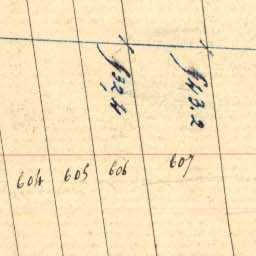 f32,4
f43.2
604 605 606 607